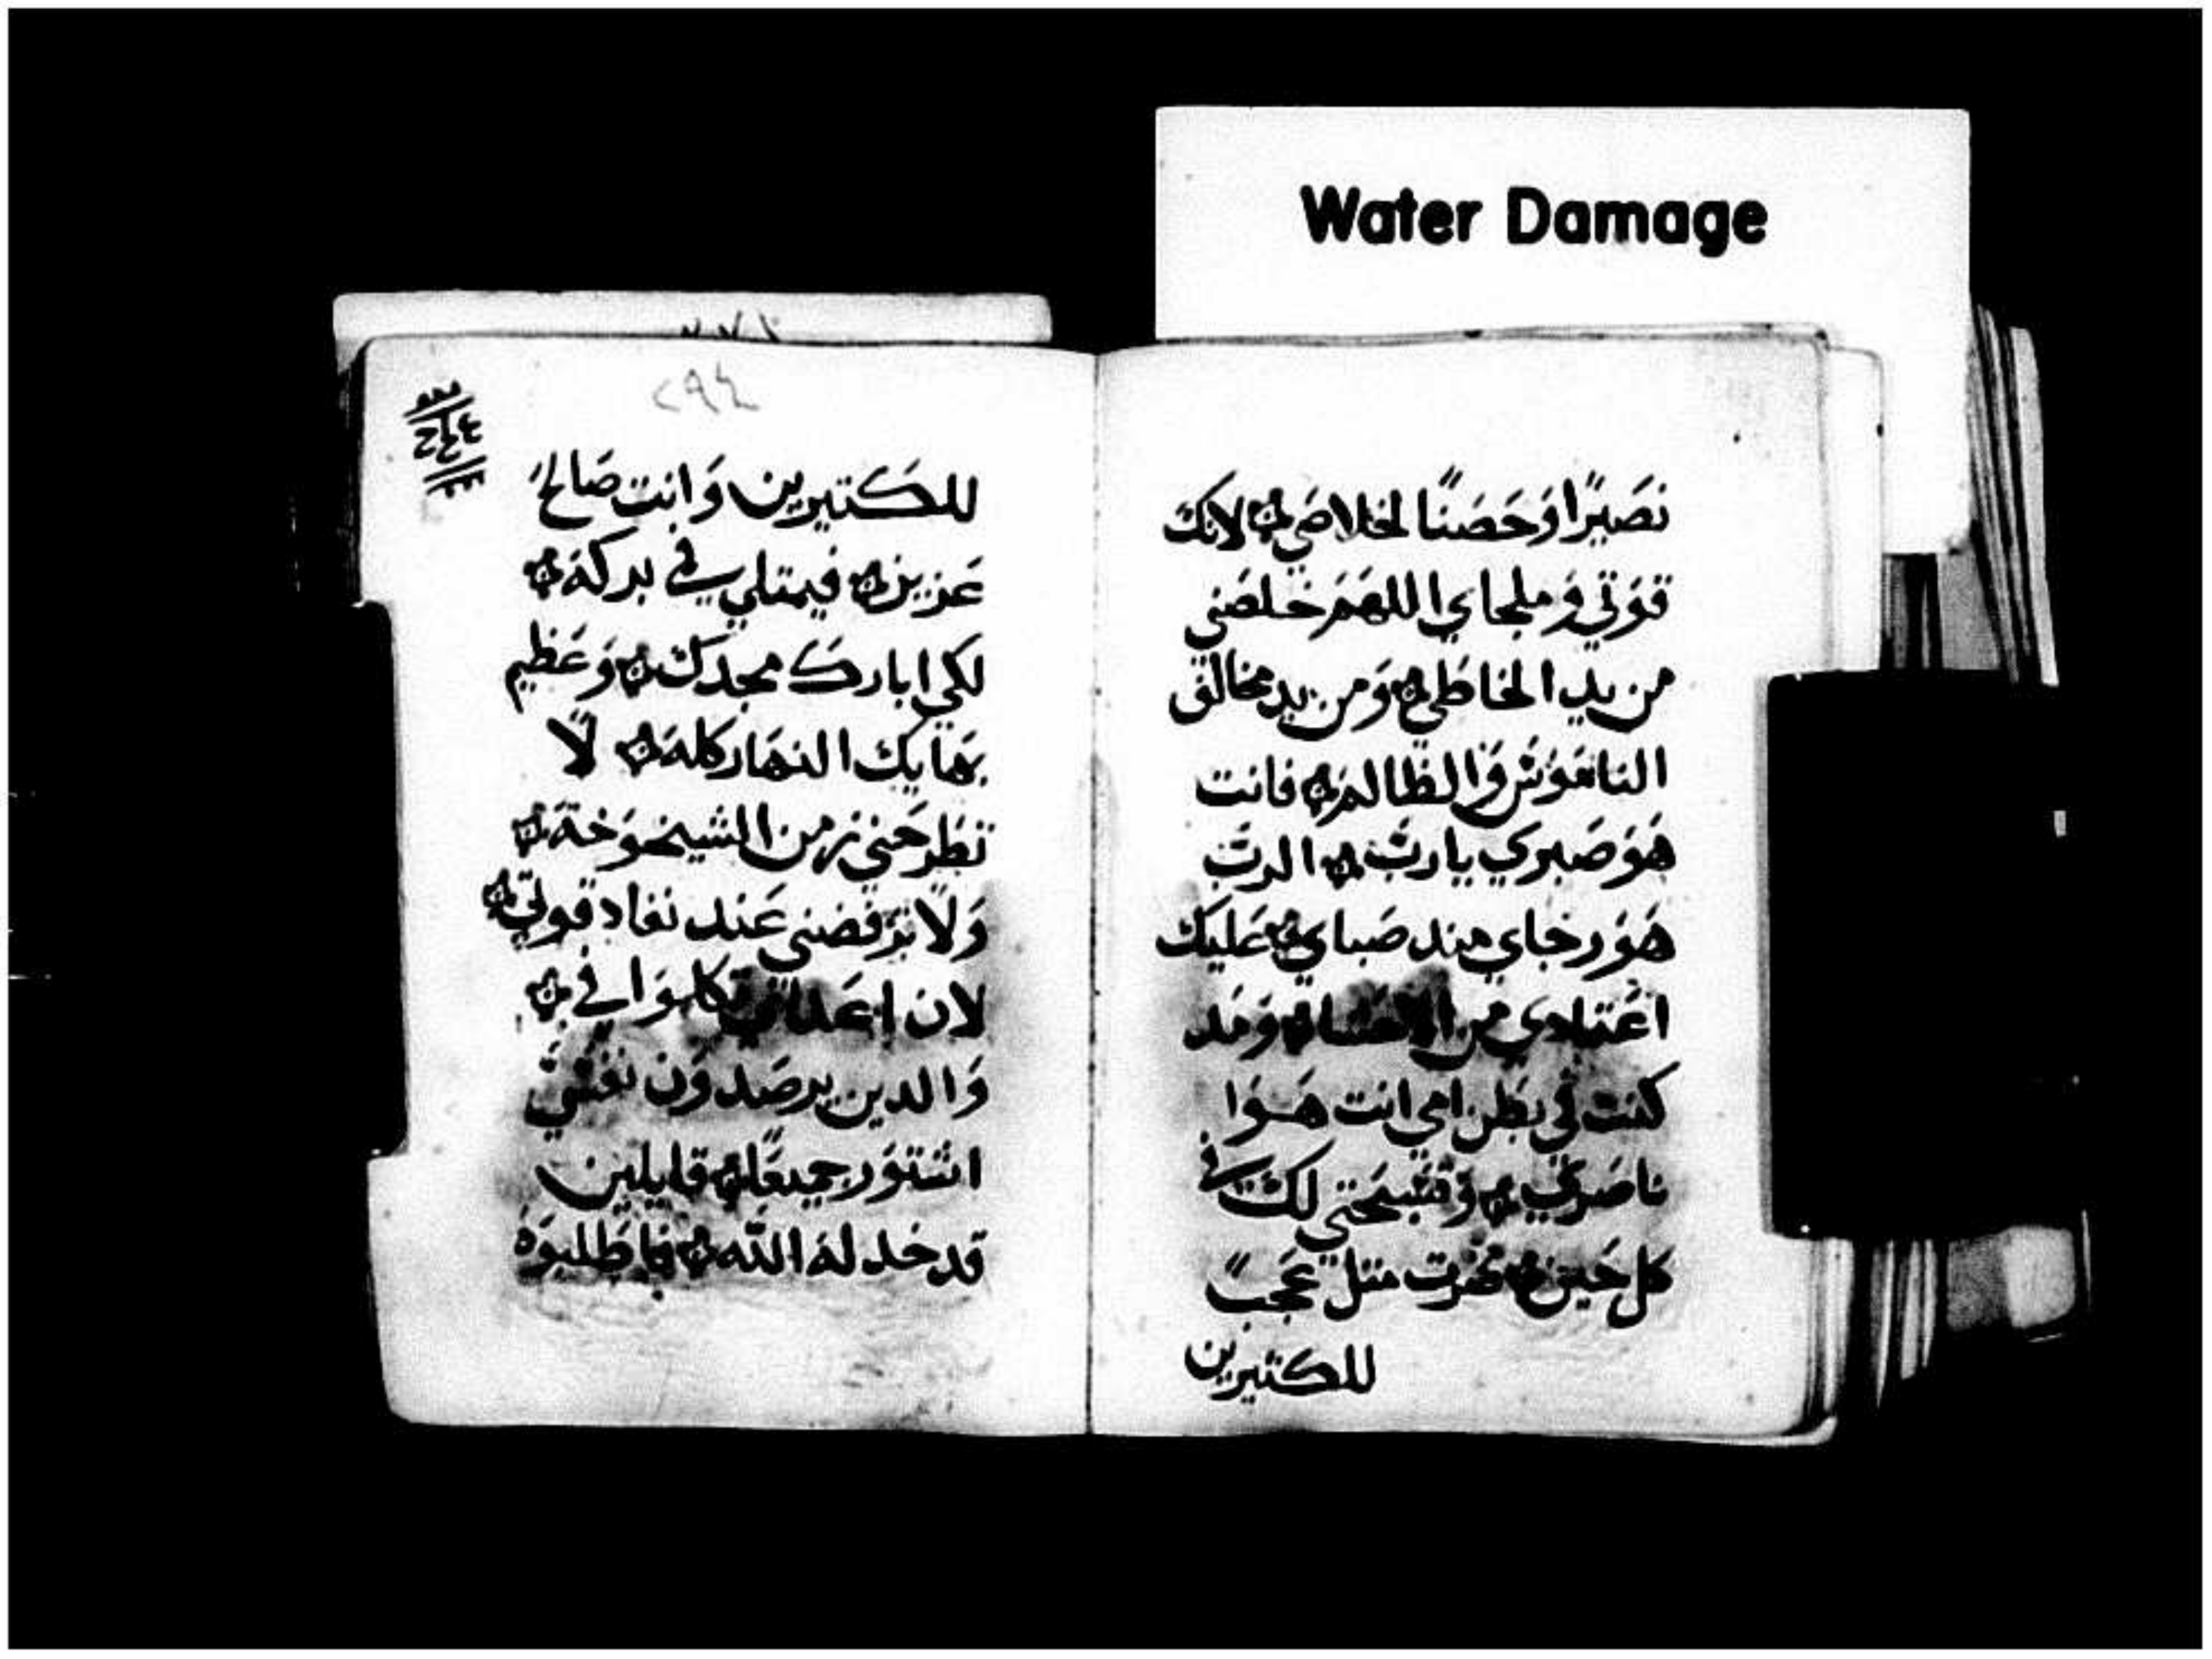 Water Damage
نصَيرًا وَحَصَنًا لخلاصَي لانك
قوَتي وَملجاي اللهَمَ خلصَني
من يد الخاطي وَمن يد مخالف
الناموَسَ وَالظالم فانت
هَوَ صَبري يارب الرب
هَوَ رجاي مند صَباي عَليك
اعَتمادي من وَمد
كنت في بطن امي انت هَوَا
ناصَري وَتسبحتي لك في
كل حَين صرت متل عَجبًا
للكتيرين
٢٩٤
للكتيرين وَانت صَالح
عَزيز فيمتلي في بركة
لكي ابارك مجدك وَعَظيم
بهَايك النهَار كله لا
تطرحَني زمن الشيخوَخة
وَلا ترفضني عَند نفاد قوتي
لان اعَداي تكلموَا في
وَالدين يرصَدوَن نفسي
اشتوَر جميعًا قايلين
قد خدله الله فاطلبوَه